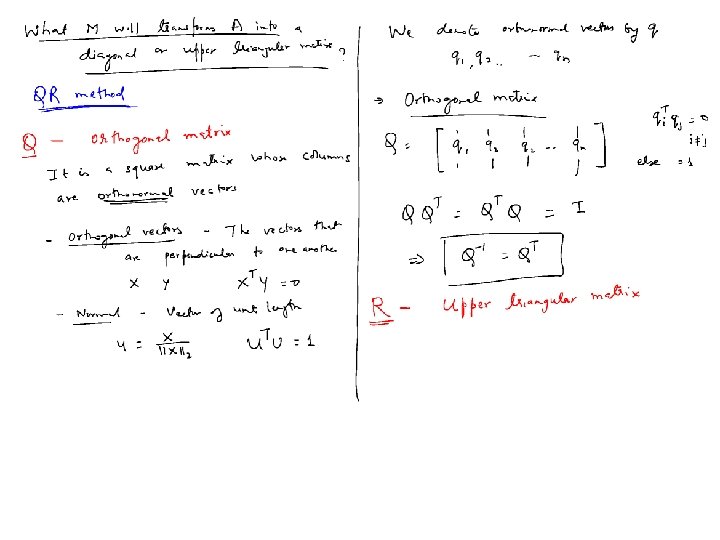 What M will transform A into a
diagonal or upper triangular matrix?
QR method
Q - orthogonal matrix
It is a square matrix whose columns
are orthonormal vectors
- orthogonal vectors - The vectors that
are perpendicular to one another
X Y X^T Y = 0
- Normal - Vector of unit length
u = X / ||X||_2 U^T U = 1
We denote orthonormal vectors by q
q_1, q_2 .. - q_n
→ Orthogonal matrix
Q = [ q_1 q_2 q_2 .. q_n ]
q_i^T q_j = 0
i≠j
else = 1
QQ^T = Q^T Q = I
⇒ Q^-1 = Q^T
R - Upper triangular matrix